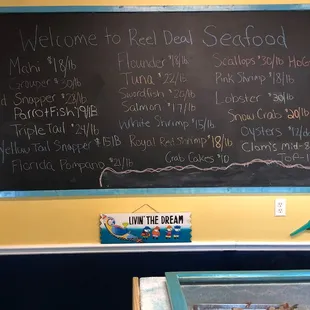 Welcome to Reel Deal Seafood
Mahi $18/lb
Grouper $30/lb
Snapper $28/lb
Parrot Fish 19/lb
Triple Tail $24/lb
Yellow Tail Snapper $15lb
Florida Pompano $21/lb
Flounder $18/lb
Tuna $22/lb
Swordfish $22/lb
Salmon $17/lb
White Shrimp $15/lb
Royal Red Shrimp $18/lb
Crab Cakes $10
Scallops $30/lb
Pink Shrimp $18/lb
Lobster $30/lb
Snow Crab $20/lb
Oysters
Clams mid-8
Top-1
LIVIN' THE DREAM